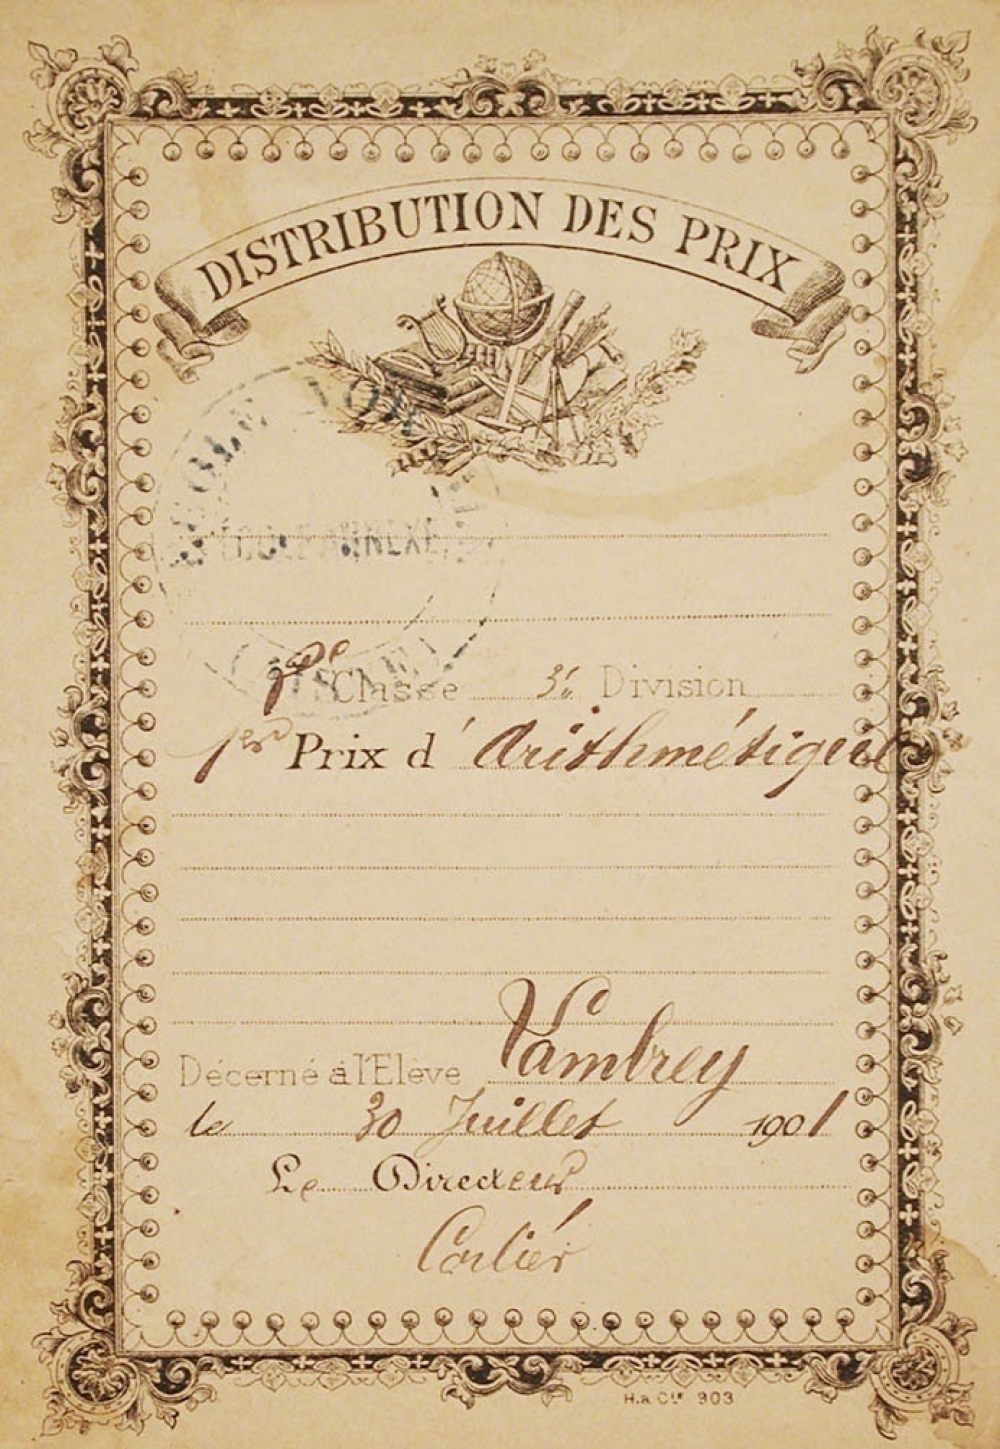 DISTRIBUTION DES PRIX
ÉCOLE ANNEXE
1re Classe 3e Division
1er Prix d'Arithmétique
Décerné à l'Elève Vambrey
le 30 Juillet 1901
Le Directeur
Carlier
H.& Cie 903